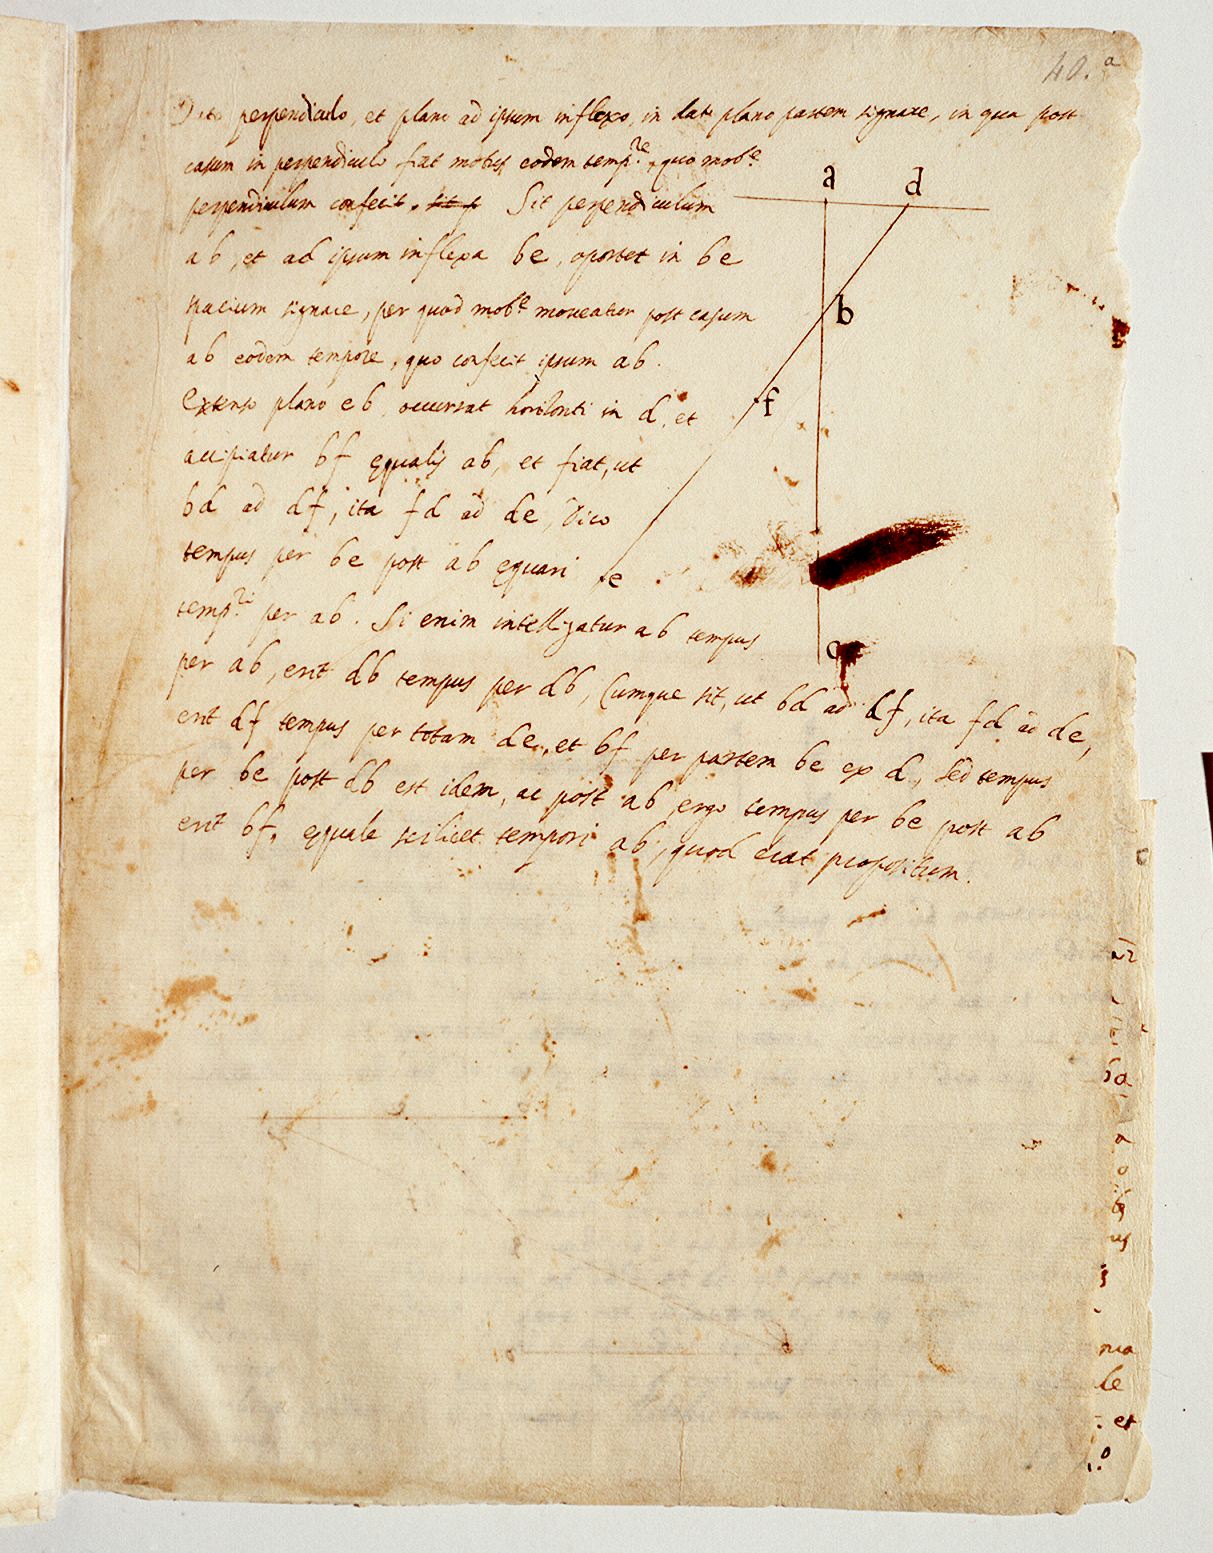 40. a
Dato perpendiculo, et plano ad ipsum inflexo, in dato plano partem signare, in qua post
casum in perpendiculo fiat motus eodem temp.re, quo mob.e
perpendiculum confecit. Sit perpendiculum
a d
ab, et ad ipsum inflexa be, oportet in be
spacium signare, per quod mob.e moveatur post casum
b
ab eodem tempore, quo confecit ipsum ab.
Extenso plano eb occurrat horizonti in d, et
f
accipiatur bf equalis ab, et fiat, ut
bd ad df, ita fd ad de, Dico
tempus per be post ab equari
e
temp.ri per ab. Si enim intelligatur ab tempus
c
per ab, erit db tempus per db, Cumque sit, ut bd ad df, ita fd ad de,
erit df tempus per totam de, et bf per partem be ex d, sed tempus
per be post db est idem, ac post ab, ergo tempus per be post ab
erit bf, equale scilicet tempori ab, quod erat propositum.
ba
a
o
us
le
et